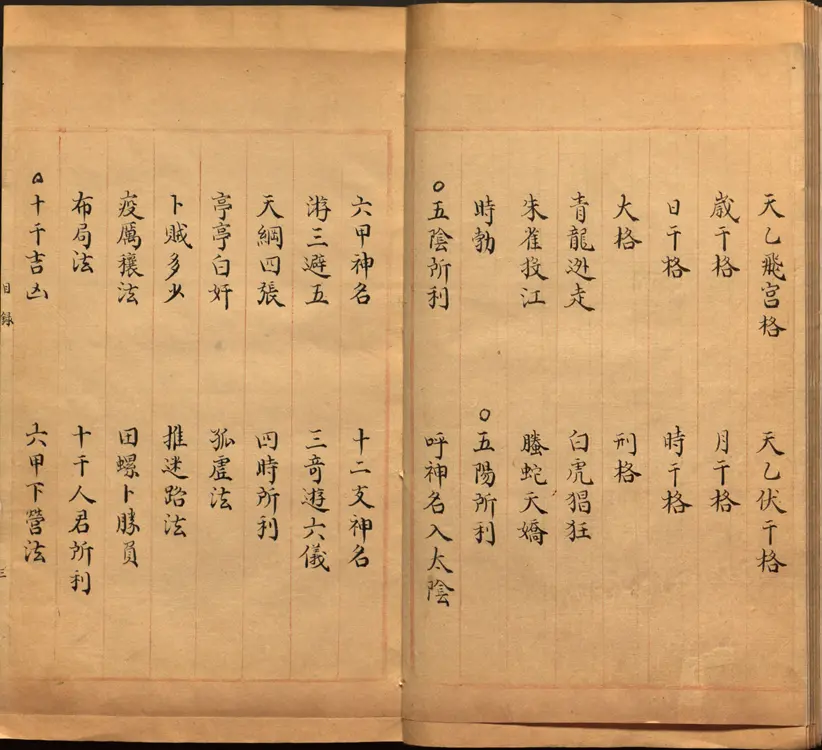 天乙飛宫格 天乙伏干格
歲干格 月干格
日干格 時干格
大格 刑格
青龍迯走 白虎猖狂
朱雀投江 螣蛇天嬌
時勃 ○五陽所利
○五陰所利 呼神名入太陰
六甲神名 十二支神名
游三避五 三竒遊六儀
天綱四張 四時所利
亭亭白奸 孤虛法
卜賊多少 推迷路法
疫厲禳法 田螺卜勝負
布局法 十干人君所利
○十干吉凶 六甲下營法
目錄 三